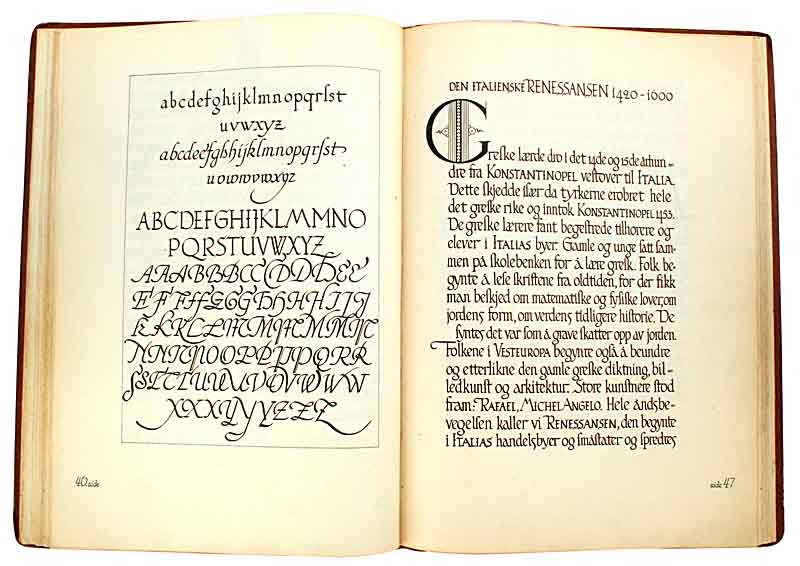 abcdefghijklmnopqrſst
uvwxyz
abcdeefghhijklmnopqrſst
uvwwvwxy
ABCDEFGHIJKLMMNO
PQRSTUVWXYZ
AAABBBCCDDHEE
KKRCLLMMMMMM
XXXXYYYZZZ
46 side
DEN ITALIENSKE RENESSANSEN 1420-1600
Greſke lærde dro i det 14de og 15de århun-
dre fra KONSTANTINOPEL veſtover til ITALIA.
Dette ſkjedde iſær da tyrkerne erobret hele
det greſke rike og inntok KONSTANTINOPEL 1453.
De greſke lærere fant begeſtrede tilhorere og
elever i ITALIAS byer. Gamle og unge ſatt ſam-
men på ſkolebenken for å lære greſk. Folk be-
gynte å leſe ſkriftene fra oldtiden, for der fikk
man beſkjed om matematiſke og fyſiſke lover, om
jordens form, om verdens tidligere hiſtorie. De
ſyntes det var ſom å grave ſkatter opp av jorden.
Folkene i VESTEUROPA begynte også å beundre
og etterlikne den gamle greſke diktning, bil-
ledkunſt og arkitektur. Store kunſtnere ſtod
fram: RAFAEL, MICHEL ANGELO. Hele åndsbe-
vegelſen kaller vi RENESSANSEN, den begynte
i ITALIAS handelsbyer og ſmåſtater og ſpredtes
side 47